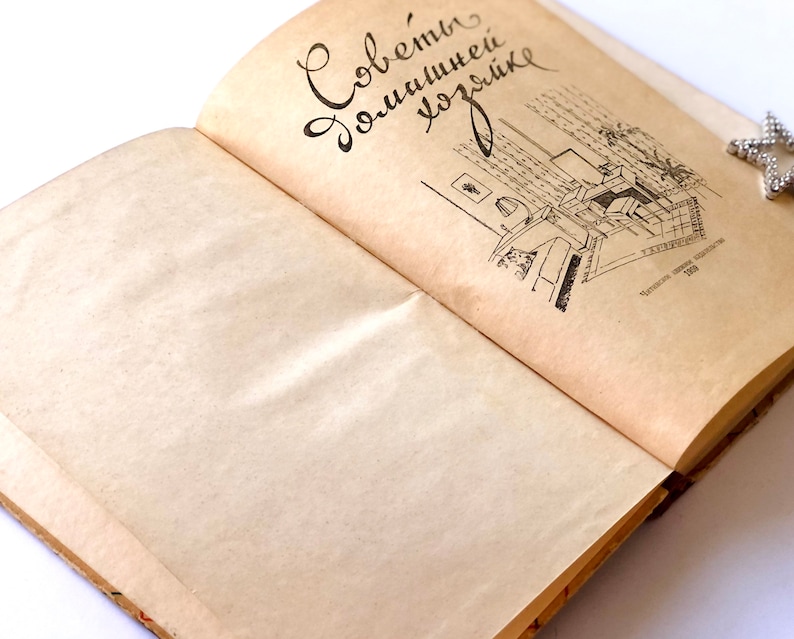 Советы
домашней
хозяйке
Читинское книжное издательство
1959